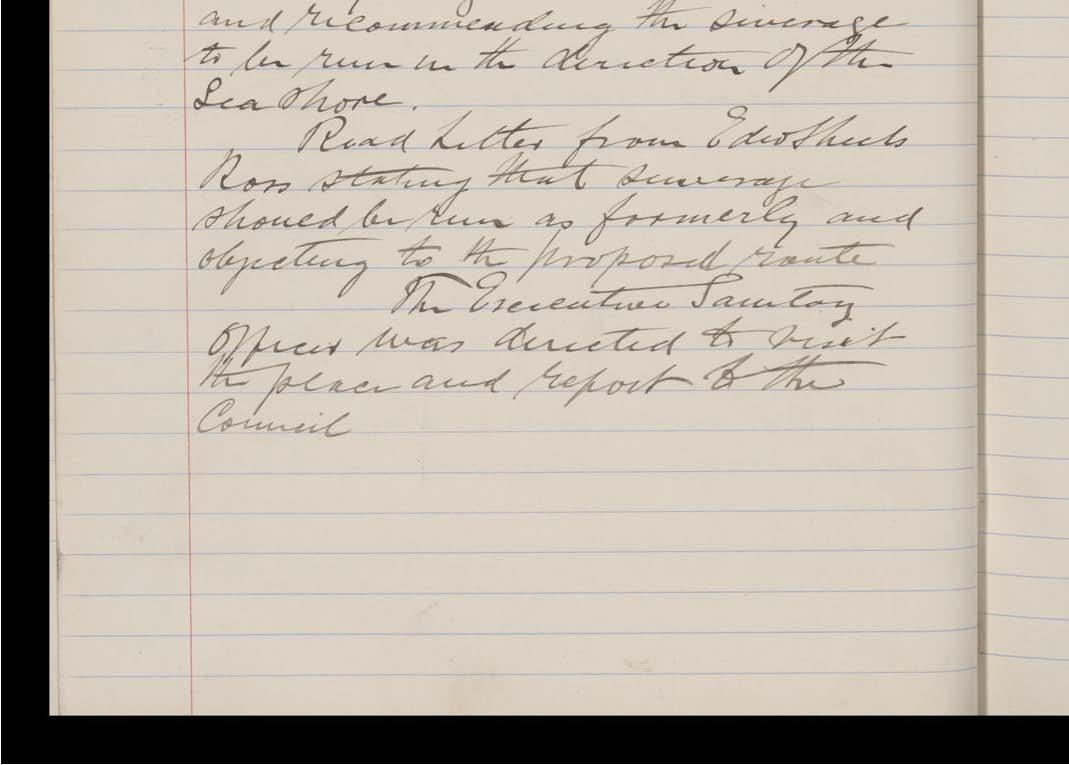 and recommending the siverage
to be run in the direction of the
Sea Shore.
Read Letter from Edw Sheels
Ross stating that suverage
should be run as formerly and
objecting to the proposed route
The Executive Sanitary
Officer was directed to visit
the place and report to the
Council